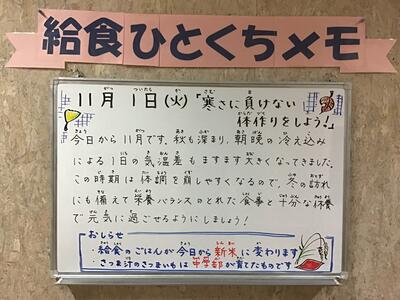 給食ひとくちメモ
11月1日(火)「寒さに負けない
体作りをしよう!」
今日から11月です。秋も深まり、朝晩の冷え込み
による1日の気温差もますます大きくなってきました。
この時期は体調を崩しやすくなるので、冬の訪れ
にも備えて栄養バランスのとれた食事と十分な休養
で元気に過ごせるようにしましょう!
おしらせ
・給食のごはんが今日から新米に変わります
・さつま汁のさつまいもは中学部が育てたものです